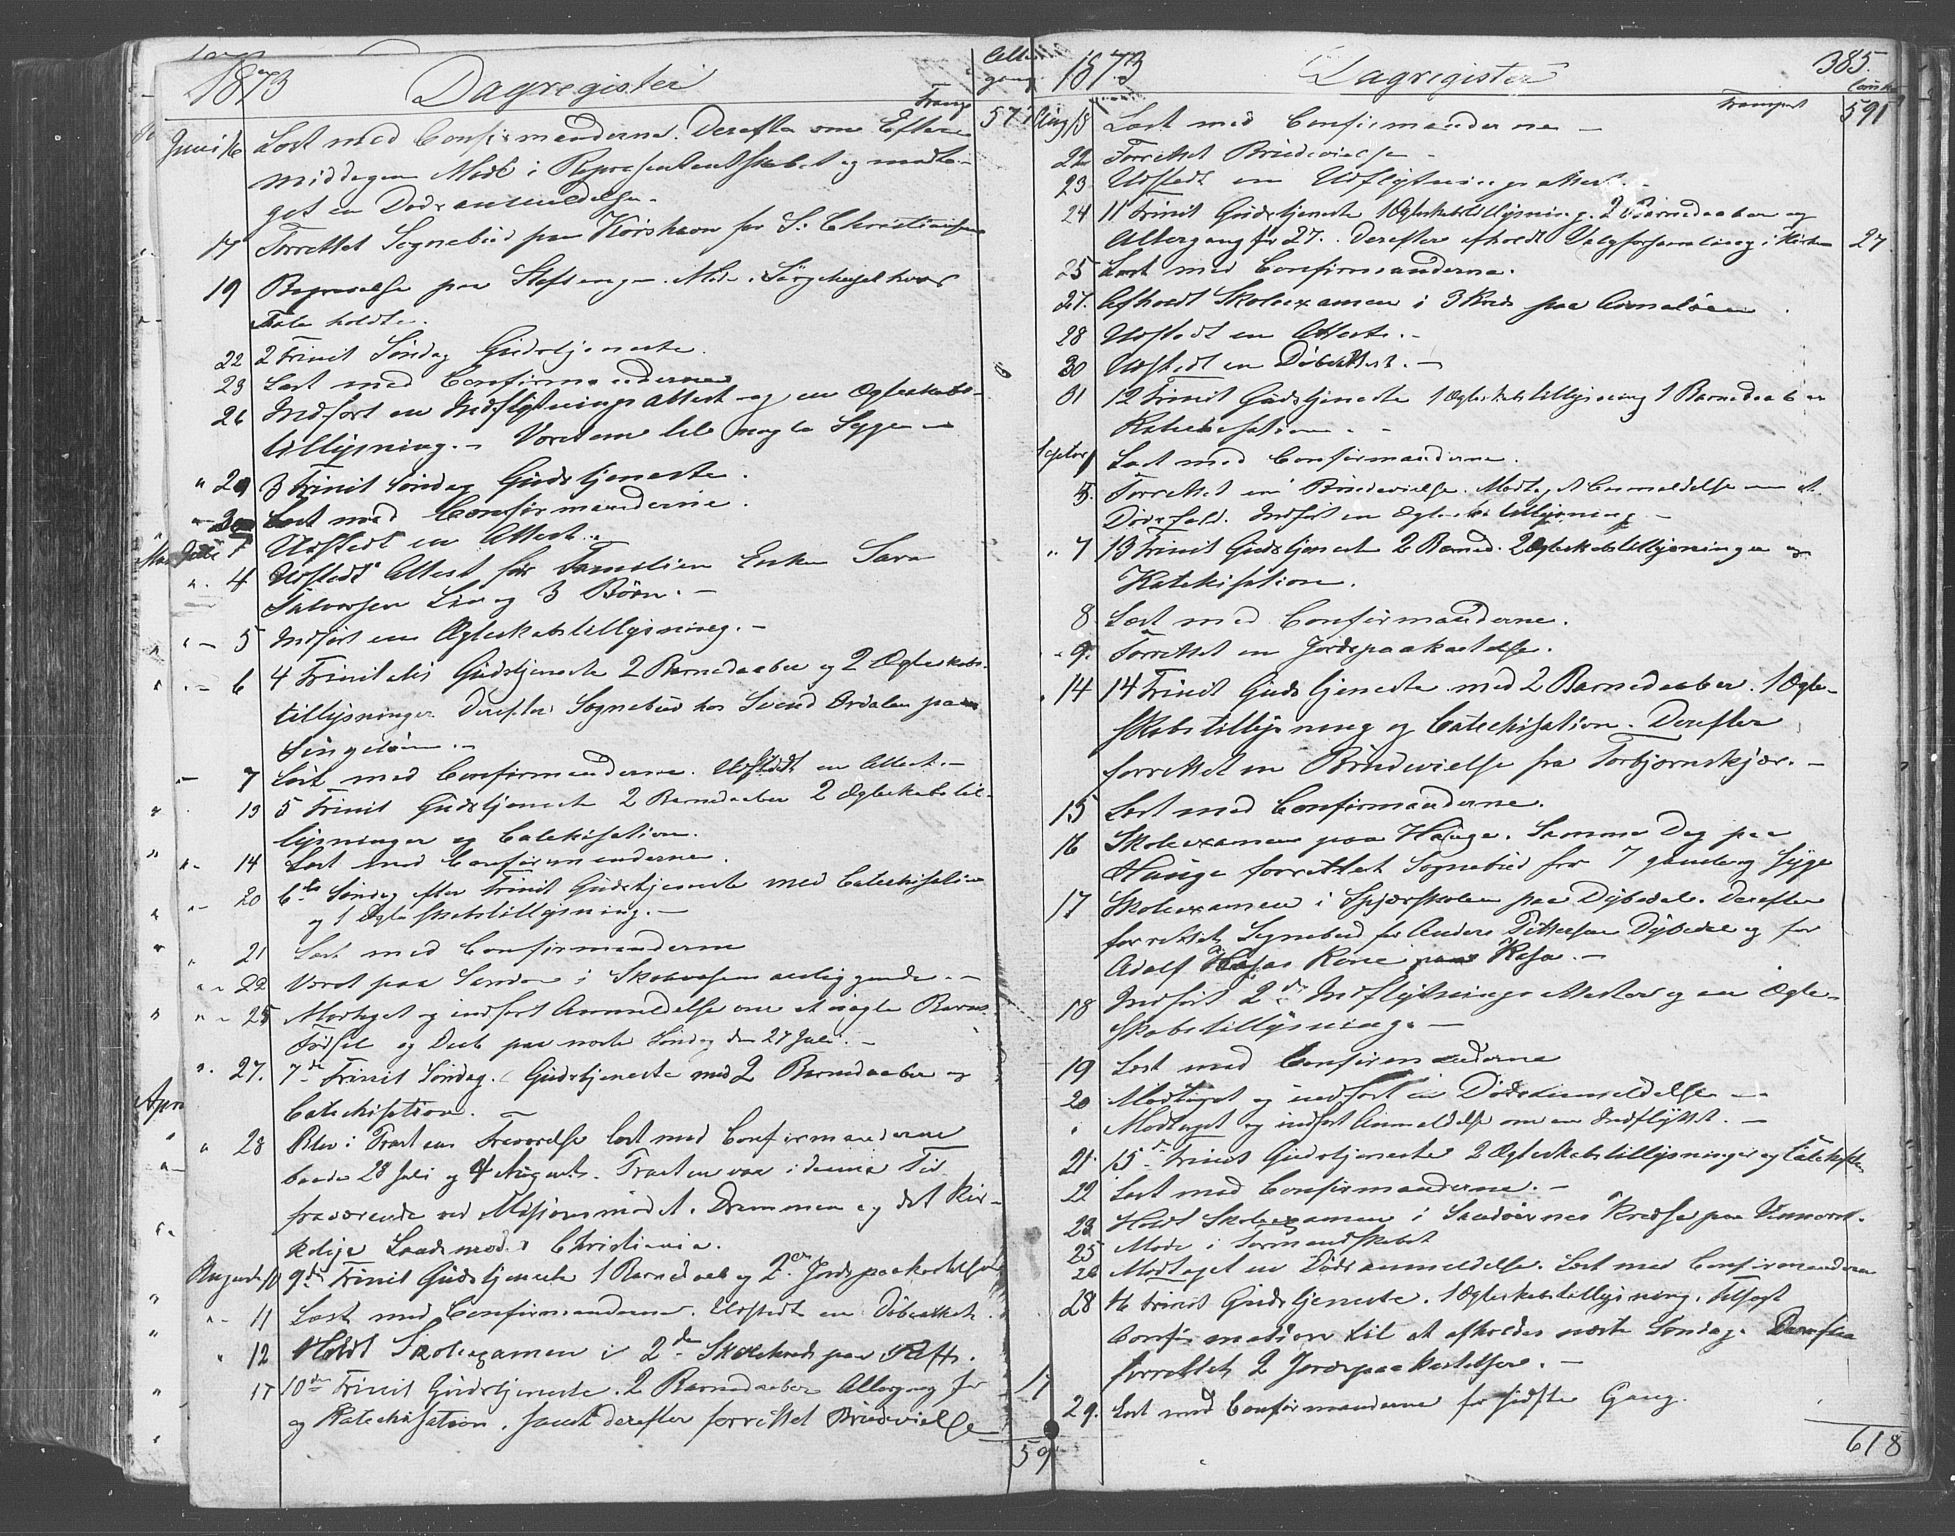 1873 Dagregister
Alter
gang
Transp 57
Juni 16 Læst med Confirmanderne. Derefter om Efter-
middagen Møde i Repræsentantskabet og modta-
get en Dødsanmeldelse.
17 Forrettet Sognebud paa Korshavn for S. Christiansen
19 Begravelse paa Møde i Sørgehuset hvor
Tale holdtes.
22 2 Trinit Søndag Gudstjeneste.
23 Læst med Confirmanderne
26 Indført en Indflytningsattest og en Ægteskabs-
tillysning. – Været om til nogle Syge
" 29 3 Trinit Søndag Gudstjeneste.
30 Læst med Confirmanderne.
Juli 1 Udstedt en Attest.
" 4 Udstedt Attest for Familien Sara
Halvorsen og 3 Børn. –
" – 5 Indført en Ægteskabstillysning. –
" – 6 4 Trinitatis Gudstjeneste 2 Barnedaaber og 2 Ægteskabs-
tillysninger Derefter Sognebud hos Svend Ordalen paa
Singeløen. –
– 7 Læst med Confirmanderne. Udstedt en Attest. –
13 5 Trinit Gudstjeneste 2 Barnedaaber 2 Ægteskabstil-
lysninger og Catekisation.
" 14 Læst med Confirmanderne.
– 20 6te Søndag efter Trinit Gudstjeneste med Catechisation
og 1 Ægteskabstillysning. –
" 21 Læst med Confirmanderne
" – 22 Været paa i Skolevæsens anliggende. –
" – 25 Modtaget og indført Anmeldelse om et uægte Barns
Fødsel og Daab paa næste Søndag den 27 Juli. –
" 27. 7de Trinit Søndag. Gudstjeneste med 2 Barnedaaber og
Catechisation. –
" 28 Blev i Præstens Fraværelse læst med Confirmanderne
baade 28 Juli og 4 August. Præsten var i denne Tid
fraværende ved Missionsmødet i Drammen og det kir-
kelige Landsmøde i Christiania.
August 10 9de Trinit Gudstjeneste 1 Barnedaab og 2de Jordspaakastelser
" – 11 Læst med Confirmanderne. Udstedt en Døbeattest.
" 12 Holdt Skoleexamen i 2den Skolekreds paa
17 10de Trinit Gudstjeneste. 2 Barnedaaber Altergang for
og Katechisation, samt derefter forrettet Brudevielse
59
1873 Dagregister 385.
Transport 591
Aug 18 Læst med Confirmanderne –
22 Forrettet Brudevielse –
23. Udstedt en Udflytningsattest. –
24 11 Trinit Gudstjeneste 1 Ægteskabstillysning. 2 Barnedaaber og
Altergang for 27. Derefter afholdt Valgforsamling i Kirken 27
25 Læst med Confirmanderne.
27. Afholdt Skoleexamen i 3 Kreds paa
28 Udstedt en Attest. –
30 Udstedt en Døbeattest. –
31 12 Trinit Gudstjeneste 1 Ægteskabstillysning 1 Barnedaab og
Katechisation –
Septbr 1 Læst med Confirmanderne.
5. Forrettet en Brudevielse. Modtaget Anmeldelse om et
Dødsfald. Indført en Ægteskabstillysning –
" 7 13 Trinit Gudstjeneste 2 Barned. 2 Ægteskabstillysninger og
Katekisation.
8. Læst med Confirmanderne.
9. Forrettet en Jordspaakastelse.
. 14 14 Trinit Gudstjeneste med 2 Barnedaaber. 1 Ægte-
skabstillysning og Catechisation. Derefter
forrettet en Brudevielse fra Torbjørnskjær. –
15 Læst med Confirmanderne.
16 Skoleexamen paa Hauge. Samme Dag paa
Hauge forrettet Sognebud for 7 gamle og Syge
17 Skoleexamen i paa Dybedal. Derefter
forrettet Sognebud for Anders Pettersen Dybedal og for
Adolf
18 Indført 2de Indflytningsattester og en Ægte-
skabstillysning. –
19 Læst med Confirmanderne
20 Modtaget og indført en Dødsanmeldelse –
Modtaget og indført Anmeldelse om en Indflyttet. –
21. 15de Trinit Gudstjeneste 2 Ægteskabstillysninger og
22 Læst med Confirmanderne. –
23 Holdt Skoleexamen i Kreds paa
25 Møde i Formandskabet
26 Modtaget en Dødsanmeldelse. Læst med Confirmanderne
28 16 Trinit Gudstjeneste. 1 Ægteskabstillysning. Tilsagt
Confirmation til at afholdes næste Søndag. Derefter
forrettet 2 Jordspaakastelser. –
29. Læst med Confirmanderne for sidste Gang.
618